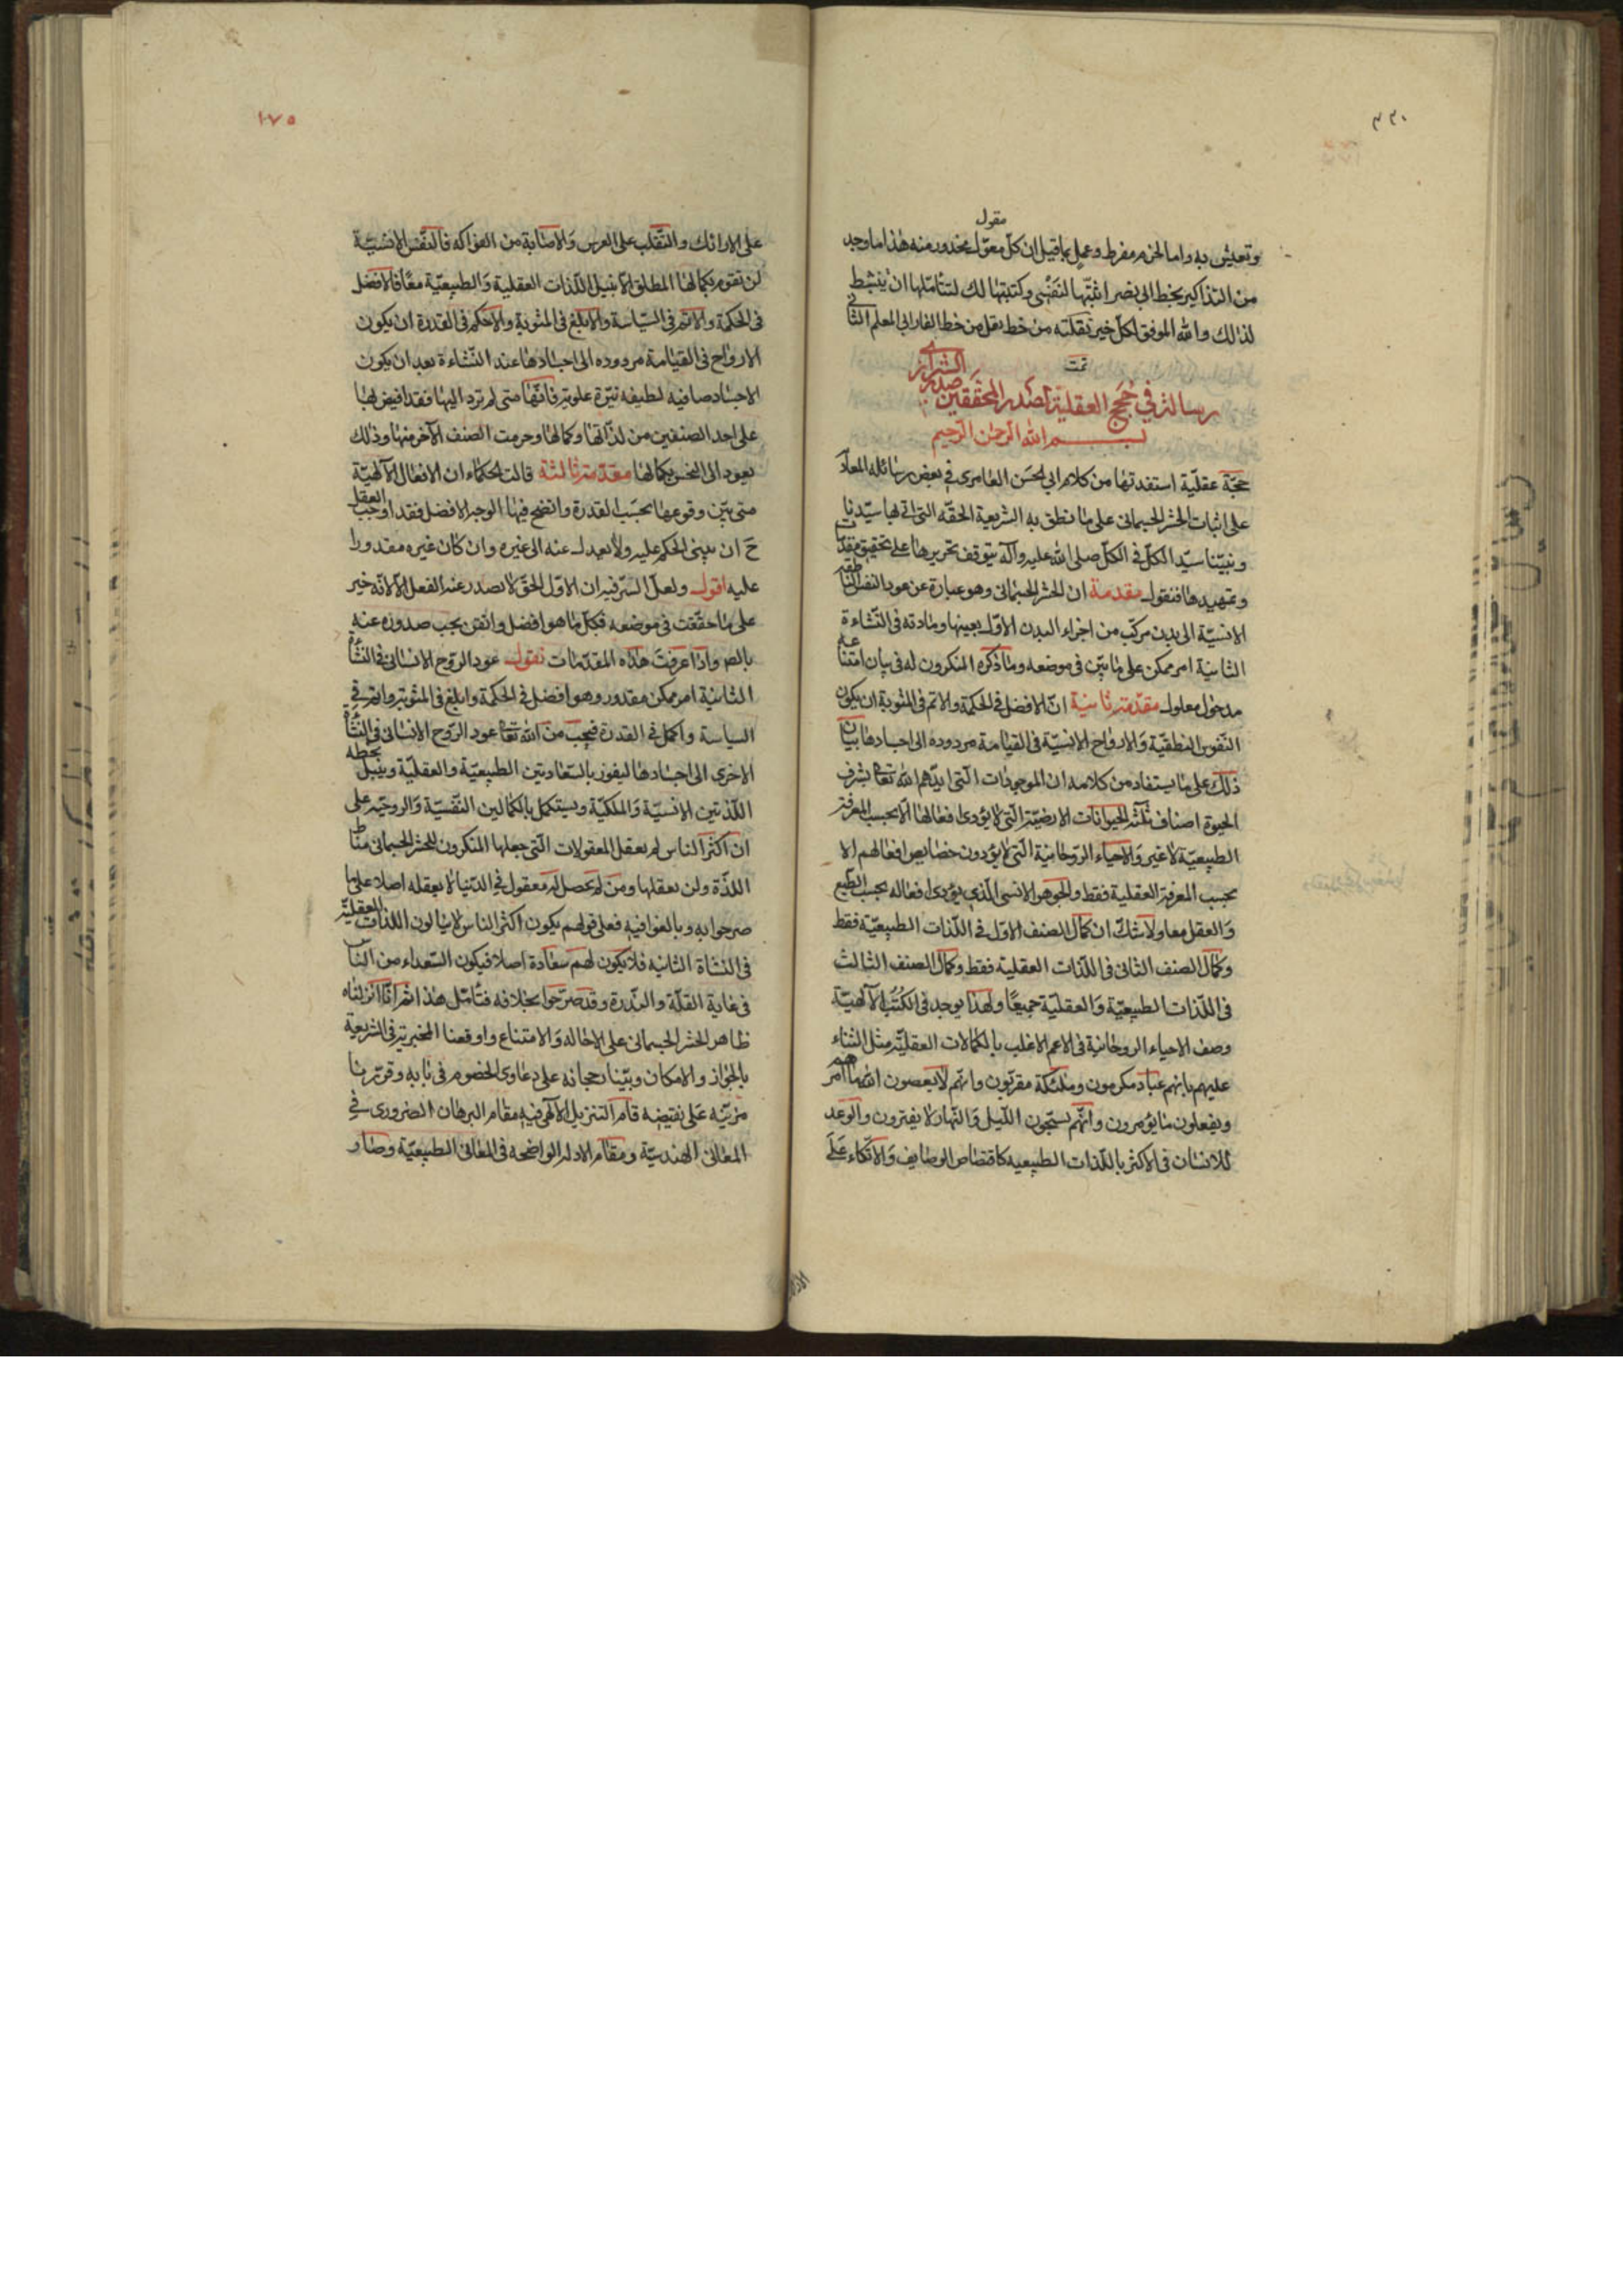 ٣٣٠
مقول
وتعيش به واما الحزم مفرط وعمل بما قيل ان كل معوّل محذور منه هذا ما وجد
من التذاكير بخط ابى نصر اثبتّها لنفسى وكتبتها لك لتتأمّلها ان ينشط
لذلك والله الموفق لكل خير نقلته من خط نقل من خط الفارابى المعلم الثانى
تمت
رسالة فى حجج العقلية لصدر المحققين صدر الشيرازى
بسم الله الرحمن الرحيم
حجّة عقليّة استفدتها من كلام ابى الحسن العامرى فى بعض رسائله المعاد
على اثبات الحشر الجسمانى على ما نطق به الشريعة الحقّه التى اتى بها سيّدنا
ونبيّنا سيّد الكلّ فى الكلّ صلى الله عليه وآله يتوقف تحريرها على تحقيق مقدّمات
وتمهيدها فنقول مقدمة ان الحشر الجسمانى وهو عبارة عن عود النفس الناطقه
الانسيّة الى بدن مركّب من اجزاء البدن الاوّل بعينها ومادته فى النّشاءة
الثانية امر ممكن على ما بيّن فى موضعه وما ذكره المنكرون له فى بيان امتناعه
مدخول معلول مقدّمة ثانية انّ الافضل فى الحكمة والاتم فى المثوبة ان يكون
النّفوس النطقيّة والارواح الانسيّة فى القيامة مردوده الى اجسادها بيان
ذلك على ما يستفاد من كلامه ان الموجودات الّتى ايدّهم الله تعالى بشرف
الحيوة اصناف ثلثة الحيوانات الارضيّة الّتى لا يؤدى افعالها الّا بحسب المعرفة
الطبيعيّة لا غير والاحياء الرّوحانية الّتى لا يؤدون خصايص افعالهم الا
بحسب المعرفة العقلية فقط والجوهر الانسى الّذى يؤدى افعاله بحسب الطّبع
والعقل معا ولا شكّ ان كمال الصنف الاوّل فى اللّذات الطبيعيّة فقط
وكمال الصنف الثانى فى اللّذات العقلية فقط وكمال الصنف الثالث
فى اللّذات الطبيعيّة والعقليّة جميعًا ولهذا يوجد فى الكتب الآلهيّة
وصف الاحياء الروحانية فى الاعم الاغلب بالكمالات العقليّة مثل الثناء
عليهم بانهم عباد مكرمون وملئكة مقرّبون وانهم لا يعصون الله ما امرهم
ويفعلون ما يؤمرون وانّهم يسبّحون اللّيل والنّهار لا يفترون والوعد
للانسان فى الاكثر باللّذات الطبيعيه كاقتضاض الوصايف والاتّكاء على
١٧٥
على الارائك والتّقلب على الفرس والاصابة من الفواكه فالنّفس الانسيّة
لن تقوم بكمالها المطلق الّا بنيل اللّذات العقلية والطبيعيّة معًا فالافضل
فى الحكمة والاتم فى السّياسة والابلغ فى المثوبة والاحكم فى القدرة ان يكون
الارواح فى القيامة مردوده الى اجسادها عند النّشاءة بعد ان يكون
الاجساد صافيه لطيفه نيّرة علوية فانّها متى لم ترد اليها فقد افيض لها
على احد الصنفين من لذّاتها وكمالها وحرمت الصنف الآخر منها وذلك
يعود الى النحس بكمالها مقدّمة ثالثة قالت الحكماء ان الافعال الآلهيّة
متى بيّن وقوعها بحسب القدرة واتضح فيها الوجه الافضل فقد اوجب العقل
ح ان يبنى الحكم عليه ولا يعدل عنه الى غيره وان كان غيره مقدورا
عليه اقول ولعلّ السّر فيه ان الاوّل الحقّ لا يصدر عنه الفعل الّا لانّه خير
على ما حقّقت فى موضعه فكلّ ما هو افضل واتقن يجب صدوره عنه
واذا عرفت هذه المقدّمات نقول عود الرّوح الانسانى فى النشأة
الثانية امر ممكن مقدور وهو افضل فى الحكمة وابلغ فى المثوبة واتم فى
السياسة واكمل فى القدرة فيجب من الله تعالى عود الرّوح الانسانى فى النشأة
الاخرى الى اجسادها ليفوز بالسّعادتين الطبيعيّة والعقليّة وينيل بحظه
اللّذتين الانسيّة والملكيّة ويستكمل بالكمالين النّفسيّة والروحيّه على
ان اكثر الناس لم يعقل المعقولات الّتى جعلها المنكرون للحشر الجسمانى مناط
اللذّة ولن يعقلها ومن لم يحصل له معقول فى الدّنيا لا يعقله اصلا على ما
صرحوا به وبالغوا فيه فعلى قولهم يكون اكثر الناس لا ينالون اللذات العقليّة
فى النشاة الثانيه فلا يكون لهم سعادة اصلا فيكون السّعداء من النّاس
فى غاية القلّة والنّدرة وقد صرّحوا بخلافه فتأمّل هذا ثم انّا انزلناه
ظاهر الحشر الجسمانى على الاحاله والامتناع واوقعنا المخبرية فى الشريعة
بالجواز والامكان وبيّنا رجحانه على دعاوى الخصوم فى بابه وقرّرنا
مزيّته على نقيضه قام التنزيل الآلهى فيه مقام البرهان الضرورى فى
المعانى الهندسيّة ومقام الادله الواضحه فى المعانى الطبيعيّة وصار